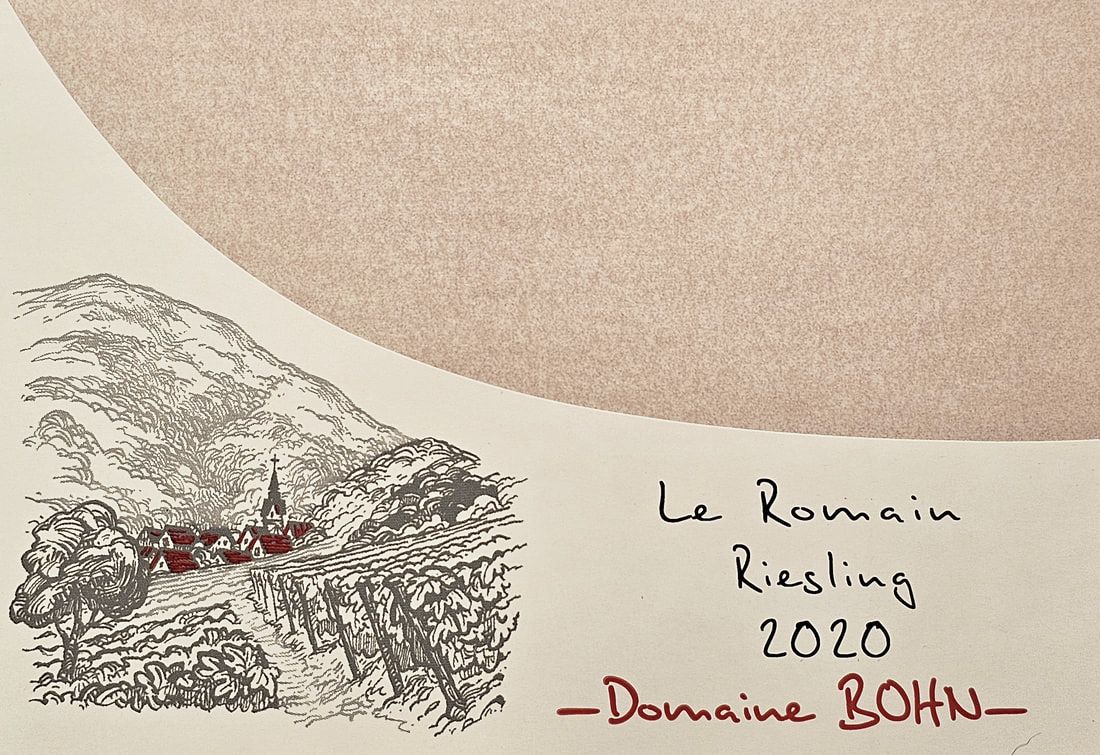 Le Romain
Riesling
2020
—Domaine BOHN—